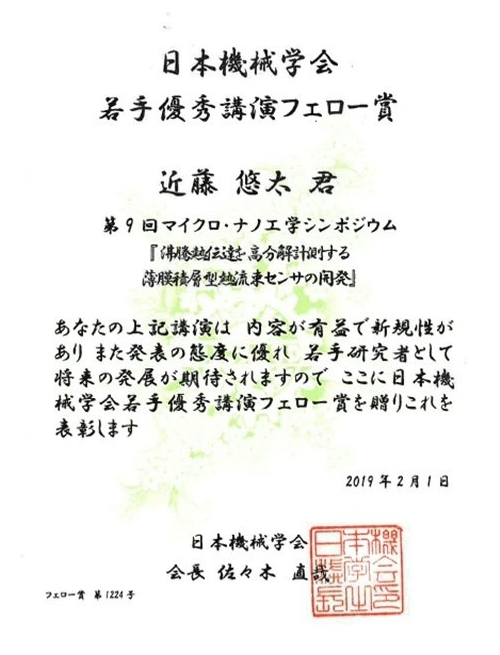 日本機械学会
若手優秀講演フェロー賞
近藤 悠太 君
第9回マイクロ・ナノ工学シンポジウム
『沸騰熱伝達を高分解計測する
薄膜積層型熱流束センサの開発』
あなたの上記講演は 内容が有益で新規性が
あり また発表の態度に優れ 若手研究者として
将来の発展が期待されますので ここに日本機
械学会若手優秀講演フェロー賞を贈りこれを
表彰します
2019年2月1日
日本機械学会
会長 佐々木 直哉
フェロー賞 第1224号